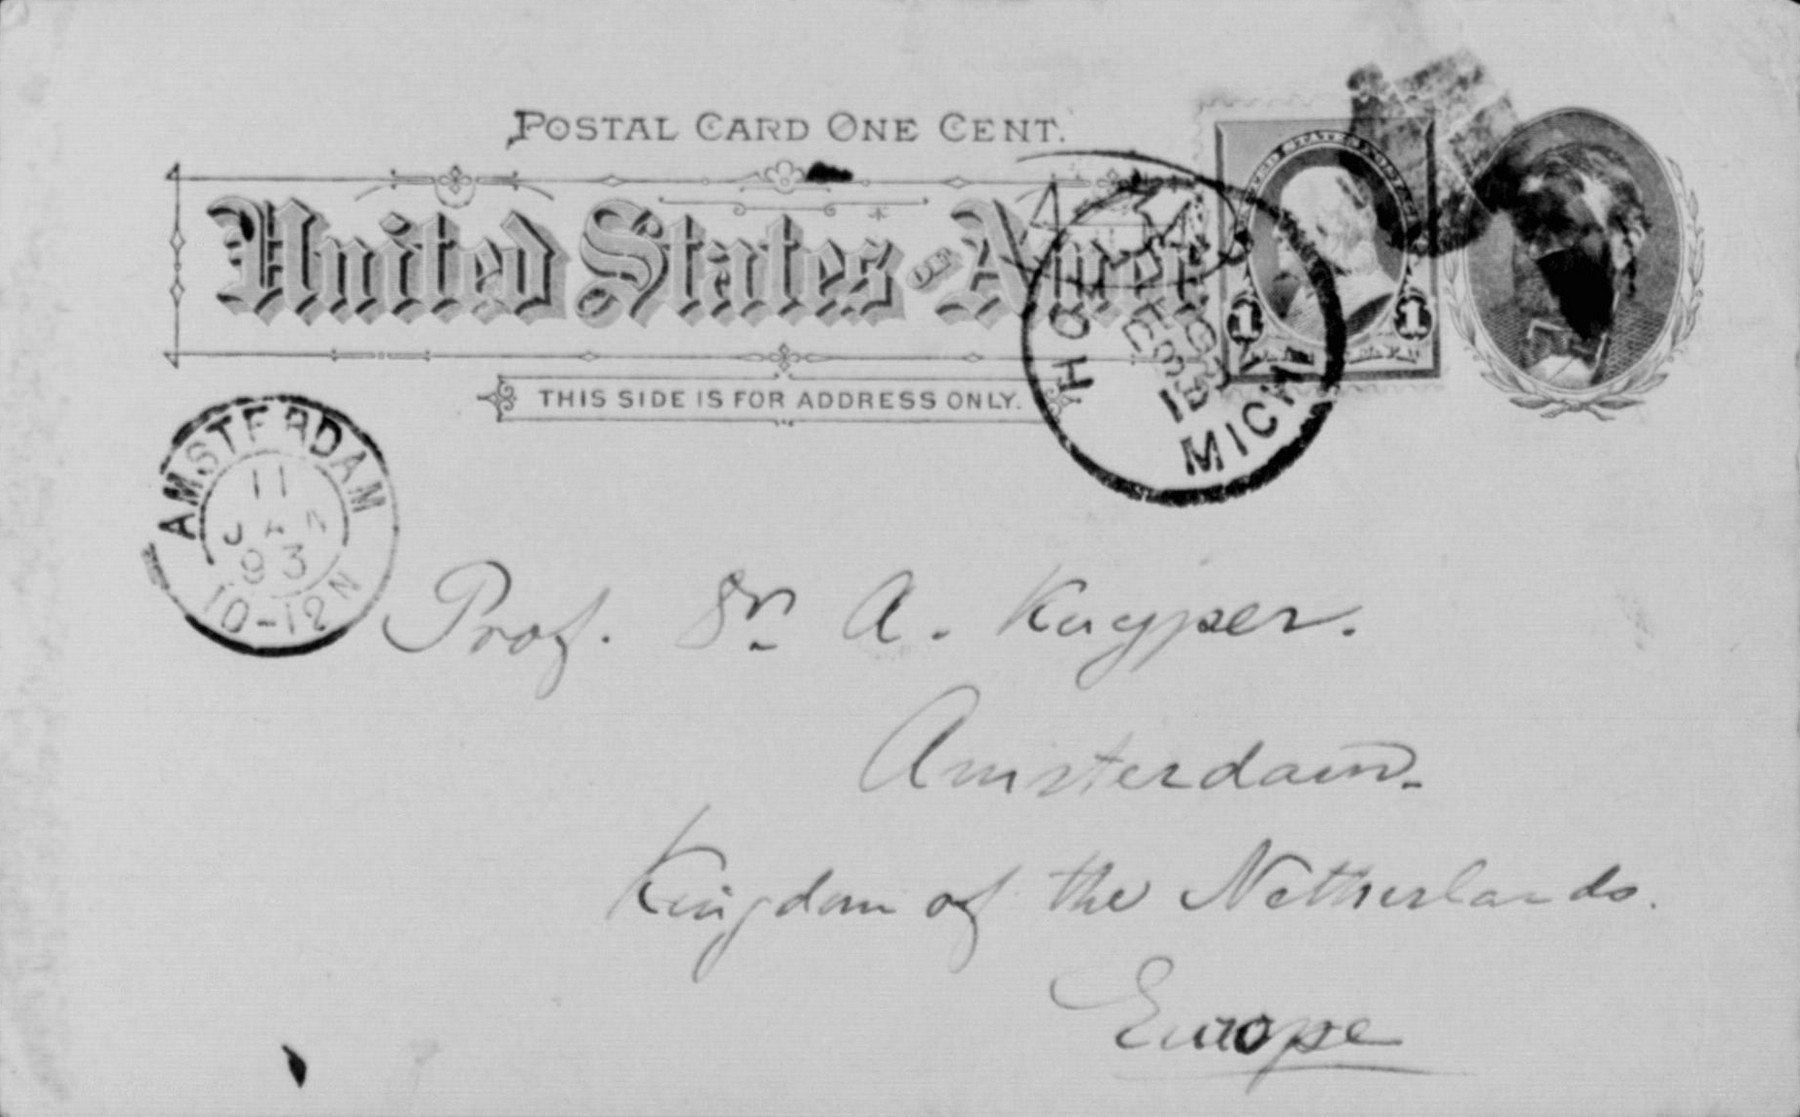 POSTAL CARD ONE CENT.
United States OF Amer
THIS SIDE IS FOR ADDRESS ONLY.
UNITED STATES POSTAGE
1 1
HOLLAND
MICH
AMSTERDAM
11
JAN
93
10-12N
Prof. Dr. A. Kuyper.
Amsterdam.
Kingdom of the Netherlands.
Europe